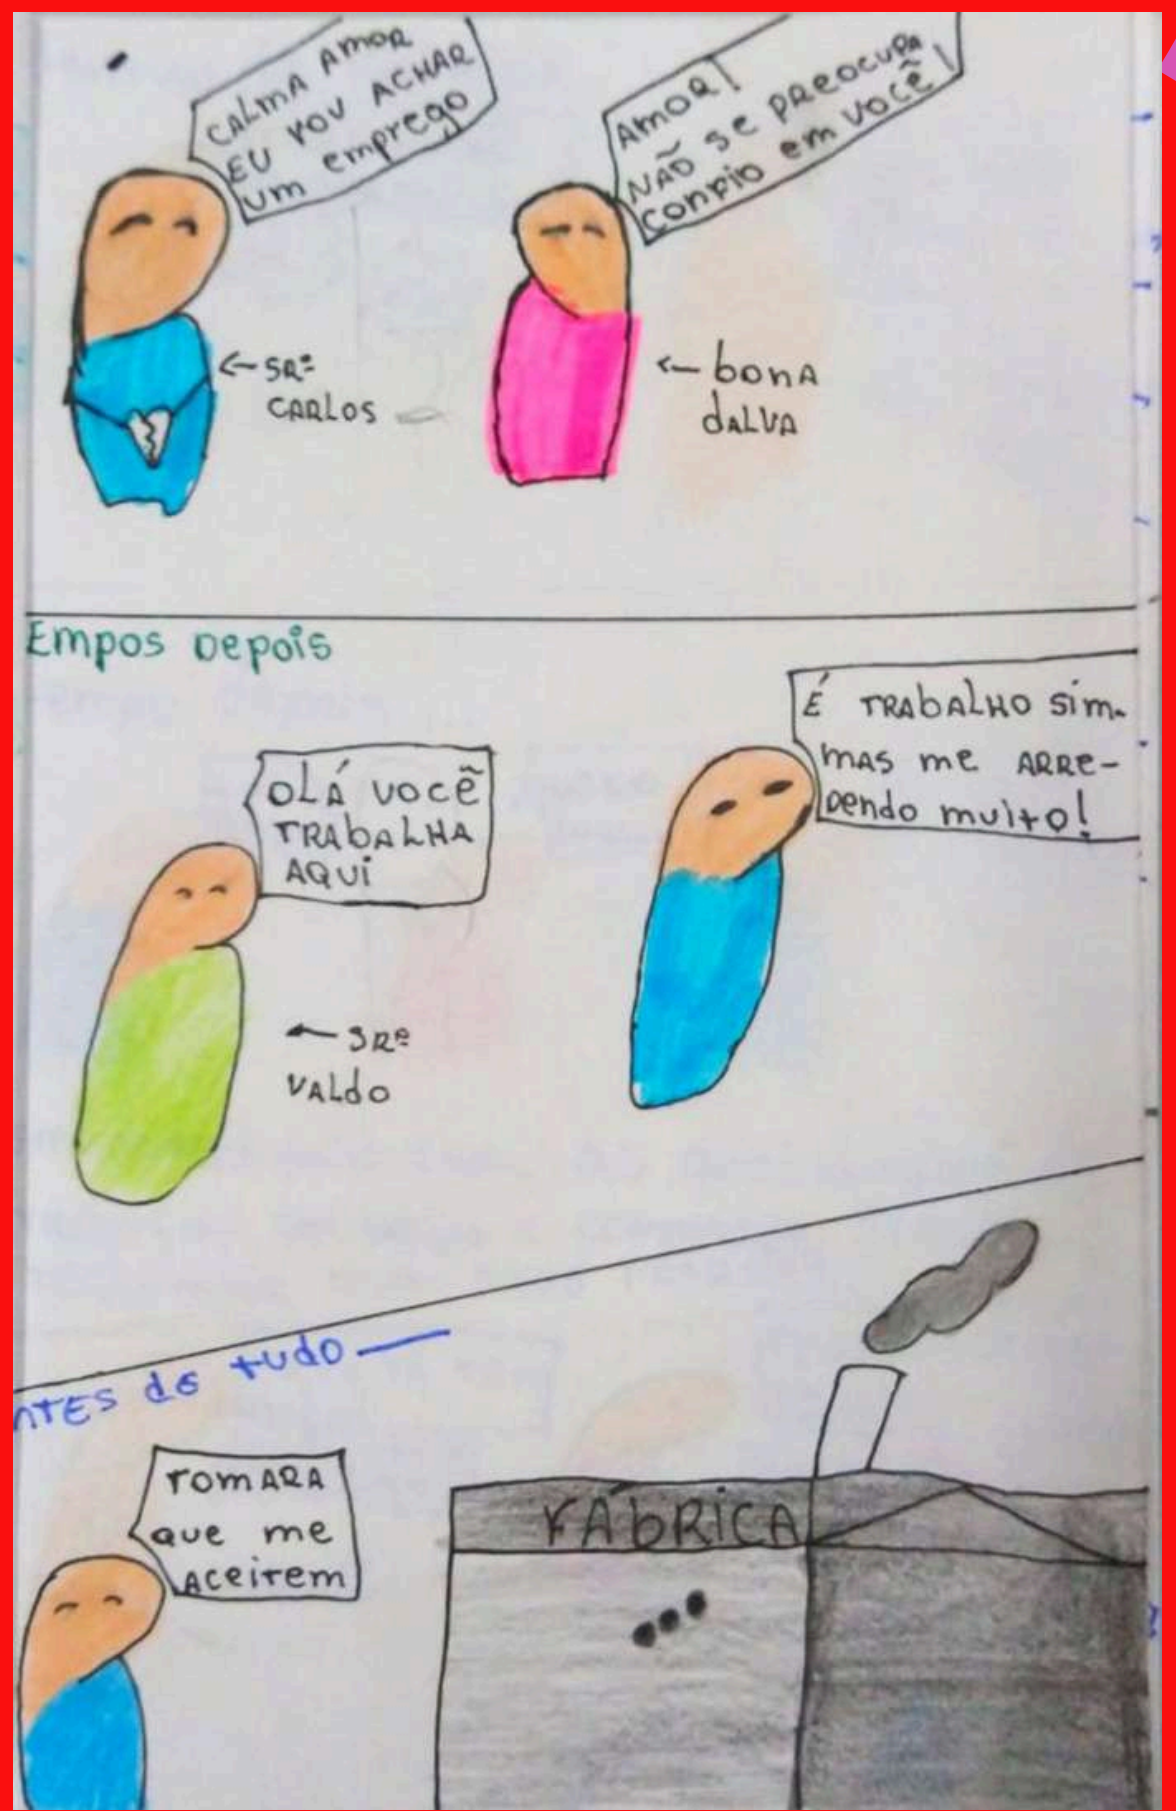 CALMA AMOR
EU VOU ACHAR
um emprego
AMOR!
NÃO se preocupa
confio em você!
← SRº
CARLOS
← bonA
dALVA
Empos Depois
OLÁ você
TRAbALHA
AQUi
É TRAbALHO sim-
mas me ARRe-
pendo muito!
← SRº
VALdo
NTES de tudo —
TOMARA
que me
ACEITEM
FÁbRiCA